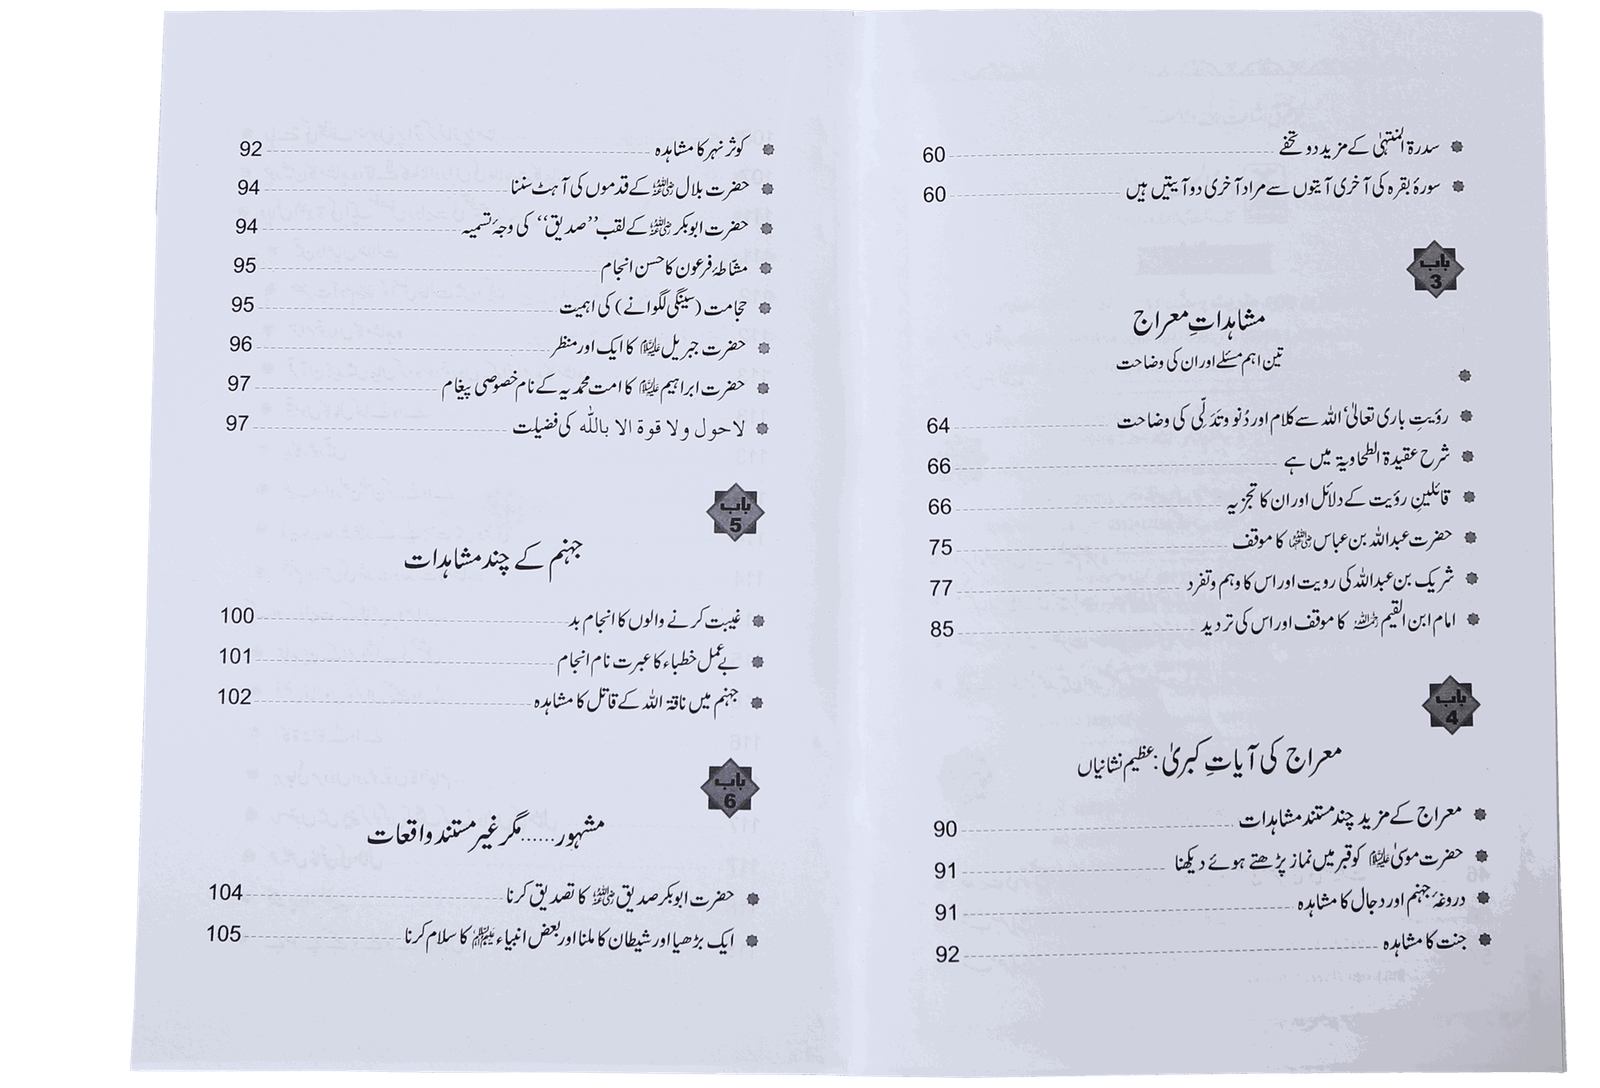 سدرۃ المنتہٰی کے مزید دو تحفے 60
سورۂ بقرہ کی آخری آیتوں سے مراد آخری دو آیتیں ہیں 60
باب 3
مشاہداتِ معراج
تین اہم مسئلے اور ان کی وضاحت
رؤیتِ باری تعالیٰ‘ اللہ سے کلام اور دُنو و تَدَلّی کی وضاحت 64
شرح عقیدۃ الطحاویۃ میں ہے 66
قائلینِ رؤیت کے دلائل اور ان کا تجزیہ 66
حضرت عبداللہ بن عباس رضی اللہ عنہما کا موقف 75
شریک بن عبداللہ کی رویت اور اس کا وہم و تفرد 77
امام ابن القیم رحمہ اللہ کا موقف اور اس کی تردید 85
باب 4
معراج کی آیاتِ کبریٰ: عظیم نشانیاں
معراج کے مزید چند مستند مشاہدات 90
حضرت موسیٰ علیہ السلام کو قبر میں نماز پڑھتے ہوئے دیکھنا 91
دروغۂ جہنم اور دجال کا مشاہدہ 91
جنت کا مشاہدہ 92
کوثر نہر کا مشاہدہ 92
حضرت بلال رضی اللہ عنہ کے قدموں کی آہٹ سننا 94
حضرت ابوبکر رضی اللہ عنہ کے لقب ’’صدیق‘‘ کی وجۂ تسمیہ 94
مشّاطۂ فرعون کا حسن انجام 95
حجامت (سینگی لگوانے) کی اہمیت 95
حضرت جبریل علیہ السلام کا ایک اور منظر 96
حضرت ابراہیم علیہ السلام کا امت محمدیہ کے نام خصوصی پیغام 97
لا حول ولا قوة الا بالله کی فضیلت 97
باب 5
جہنم کے چند مشاہدات
غیبت کرنے والوں کا انجام بد 100
بے عمل خطباء کا عبرت نام انجام 101
جہنم میں ناقۃ اللہ کے قاتل کا مشاہدہ 102
باب 6
مشہور......مگر غیر مستند واقعات
حضرت ابوبکر صدیق رضی اللہ عنہ کا تصدیق کرنا 104
ایک بڑھیا اور شیطان کا ملنا اور بعض انبیاء علیہم السلام کا سلام کرنا 105